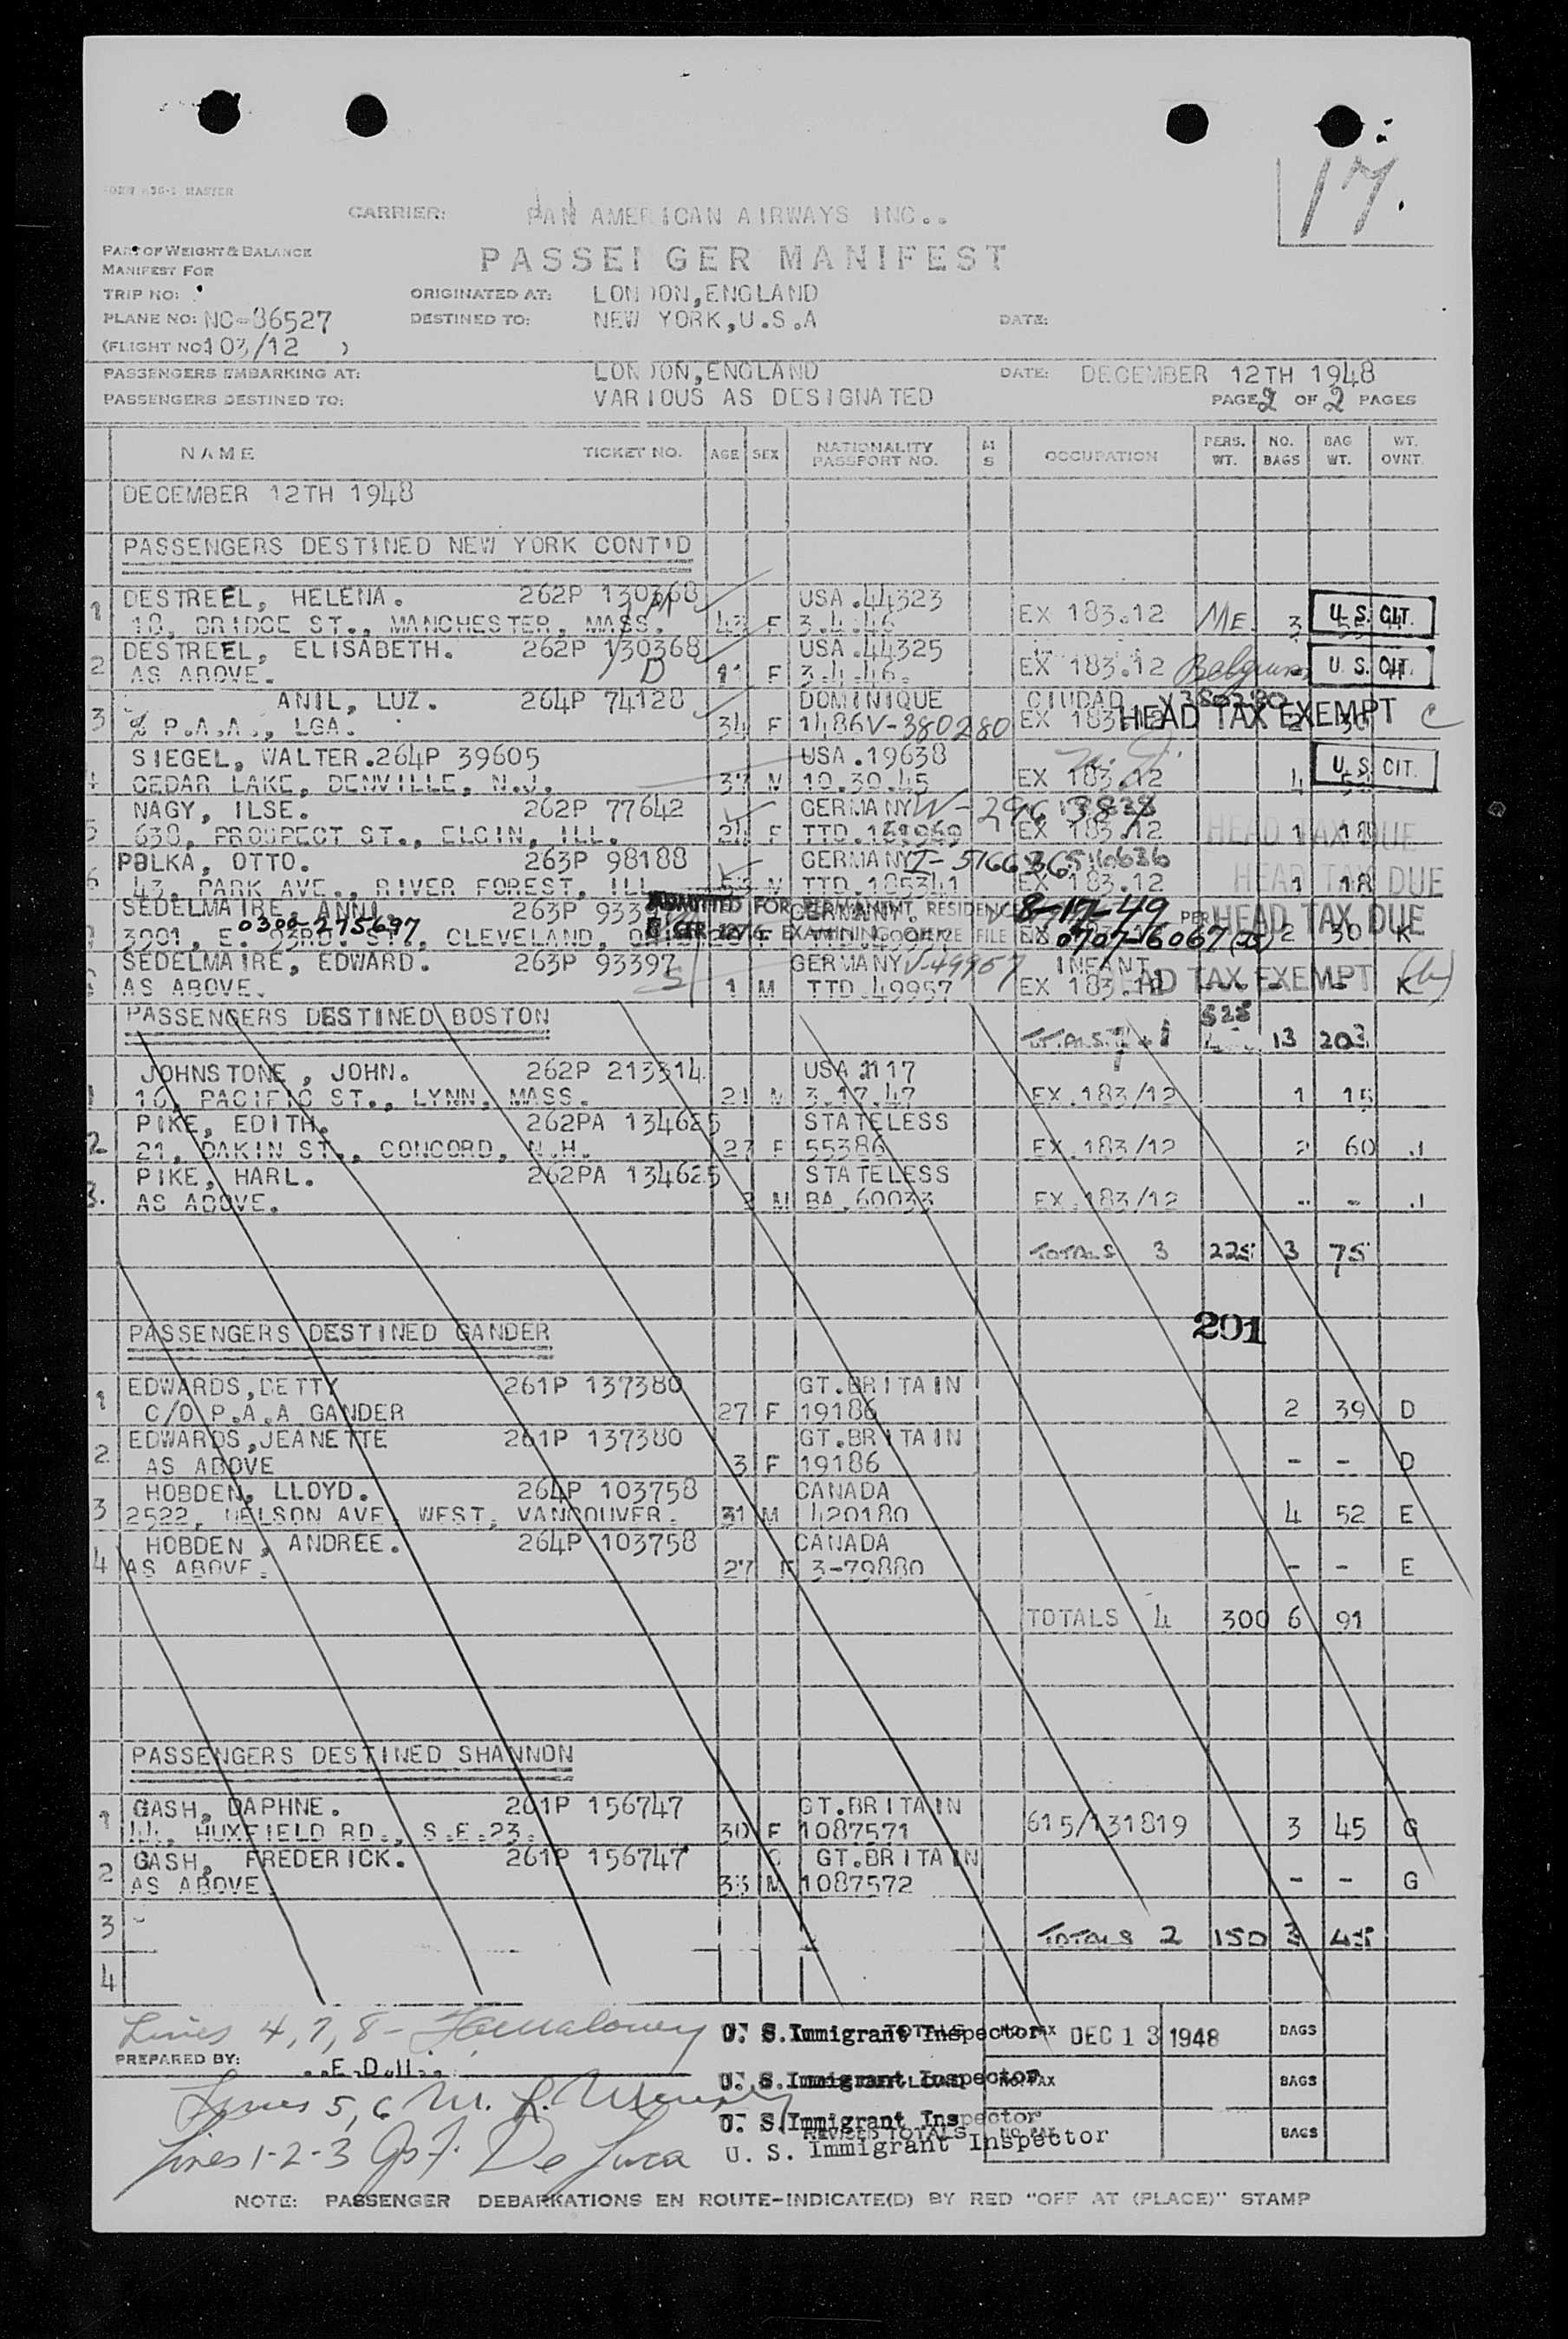 17.
FORM 836-1 MASTER
CARRIER: PAN AMERICAN AIRWAYS INC..
PART OF WEIGHT & BALANCE
MANIFEST FOR
PASSENGER MANIFEST
TRIP NO: ORIGINATED AT: LONDON,ENGLAND
PLANE NO: NC-86527 DESTINED TO: NEW YORK,U.S.A DATE:
(FLIGHT NO: 103/12 )
PASSENGERS EMBARKING AT: LONDON,ENGLAND DATE: DECEMBER 12TH 1948
PASSENGERS DESTINED TO: VARIOUS AS DESIGNATED PAGE 2 OF 2 PAGES
NAME TICKET NO. AGE SEX NATIONALITY PASSPORT NO. M S OCCUPATION PERS. WT. NO. BAGS BAG WT. WT. OVNT.
DECEMBER 12TH 1948
PASSENGERS DESTINED NEW YORK CONT'D
1 DESTREEL, HELENA. 262P 130368 USA.44323
18, BRIDGE ST., MANCHESTER, MASS. 43 F 3.4.46 EX 183.12 ME 3 U.S. CIT.
2 DESTREEL, ELISABETH. 262P 130368 USA.44325
AS ABOVE. 11 F 3.4.46. EX 183.12 Belgium U.S. CIT.
3 ANIL, LUZ. 264P 74128 DOMINIQUE CIUDAD
% P.A.A., LGA. 34 F 1486 V-380280 EX 183.12 HEAD TAX EXEMPT C
4 SIEGEL, WALTER.264P 39605 USA.19638 N.J.
CEDAR LAKE, DENVILLE, N.J. 37 M 10.30.45 EX 183.12 4 U.S. CIT.
5 NAGY, ILSE. 262P 77642 GERMANY
638, PROSPECT ST., ELGIN, ILL. 24 F EX 183.12 HEAD TAX DUE 1 18
6 POLKA, OTTO. 263P 98188 GERMANY I-516636
43, PARK AVE., RIVER FOREST, ILL TTD.185341 EX 183.12 HEAD TAX DUE 1 18
SEDELMAIRE, ANNI. 263P ADMITTED FOR PERMANENT RESIDENCE 8-17-49 PER HEAD TAX DUE
0300-275697
3001, E. 93RD. ST., CLEVELAND, 0707-6067 2 30 K
SEDELMAIRE, EDWARD. 263P 93397 GERMANY V-49957 INFANT
AS ABOVE. 1 M TTD.49957 EX 183.12 HEAD TAX EXEMPT K
PASSENGERS DESTINED BOSTON
TOTALS 7+1 525 13 203
1 JOHNSTONE, JOHN. 262P 213314 USA
10, PACIFIC ST., LYNN, MASS. 21 M 3.17.47 EX.183/12 1 15
2 PIKE, EDITH. 262PA 134625 STATELESS
21, DAKIN ST., CONCORD, N.H. 27 F 55386 EX.183/12 2 60 J
3. PIKE, HARL. 262PA 134625 STATELESS
AS ABOVE. M BA.60033 EX.183/12 - - J
TOTALS 3 225 3 75
201
PASSENGERS DESTINED GANDER
1 EDWARDS,BETTY 261P 137380 GT.BRITAIN
C/O P.A.A GANDER 27 F 19186 2 39 D
2 EDWARDS,JEANETTE 261P 137380 GT.BRITAIN
AS ABOVE 3 F 19186 - - D
3 HOBDEN, LLOYD. 264P 103758 CANADA
2522, NELSON AVE. WEST, VANCOUVER. 31 M 420180 4 52 E
4 HOBDEN, ANDREE. 264P 103758 CANADA
AS ABOVE. 27 F 3-79880 - - E
TOTALS 4 300 6 91
PASSENGERS DESTINED SHANNON
1 GASH, DAPHNE. 261P 156747 GT.BRITAIN
44, HUXFIELD RD., S.E.23. 30 F 1087571 615/131819 3 45 G
2 GASH, FREDERICK. 261P 156747 GT.BRITAIN
AS ABOVE 33 M 1087572 - - G
3 TOTALS 2 150 3 45
4
Lines 4, 7, 8 - U. S. Immigrant Inspector DEC 13 1948 BAGS
PREPARED BY: ..E.D.H..
U. S. Immigrant Inspector BAGS
Lines 5, 6 U. S. Immigrant Inspector
REVISED TOTALS BAGS
Lines 1-2-3 Jos. F. De Luca U. S. Immigrant Inspector
NOTE: PASSENGER DEBARKATIONS EN ROUTE-INDICATE(D) BY RED "OFF AT (PLACE)" STAMP